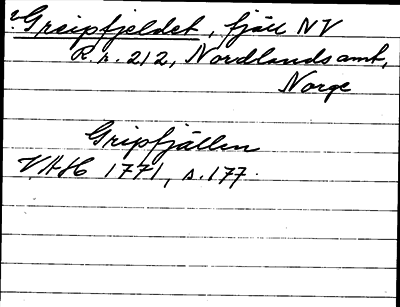 ?Greipfjeldet, fjäll NV
R.r. 212, Nordlands amt,
Norge
Gripfjällen
VAH 1771, s. 177.